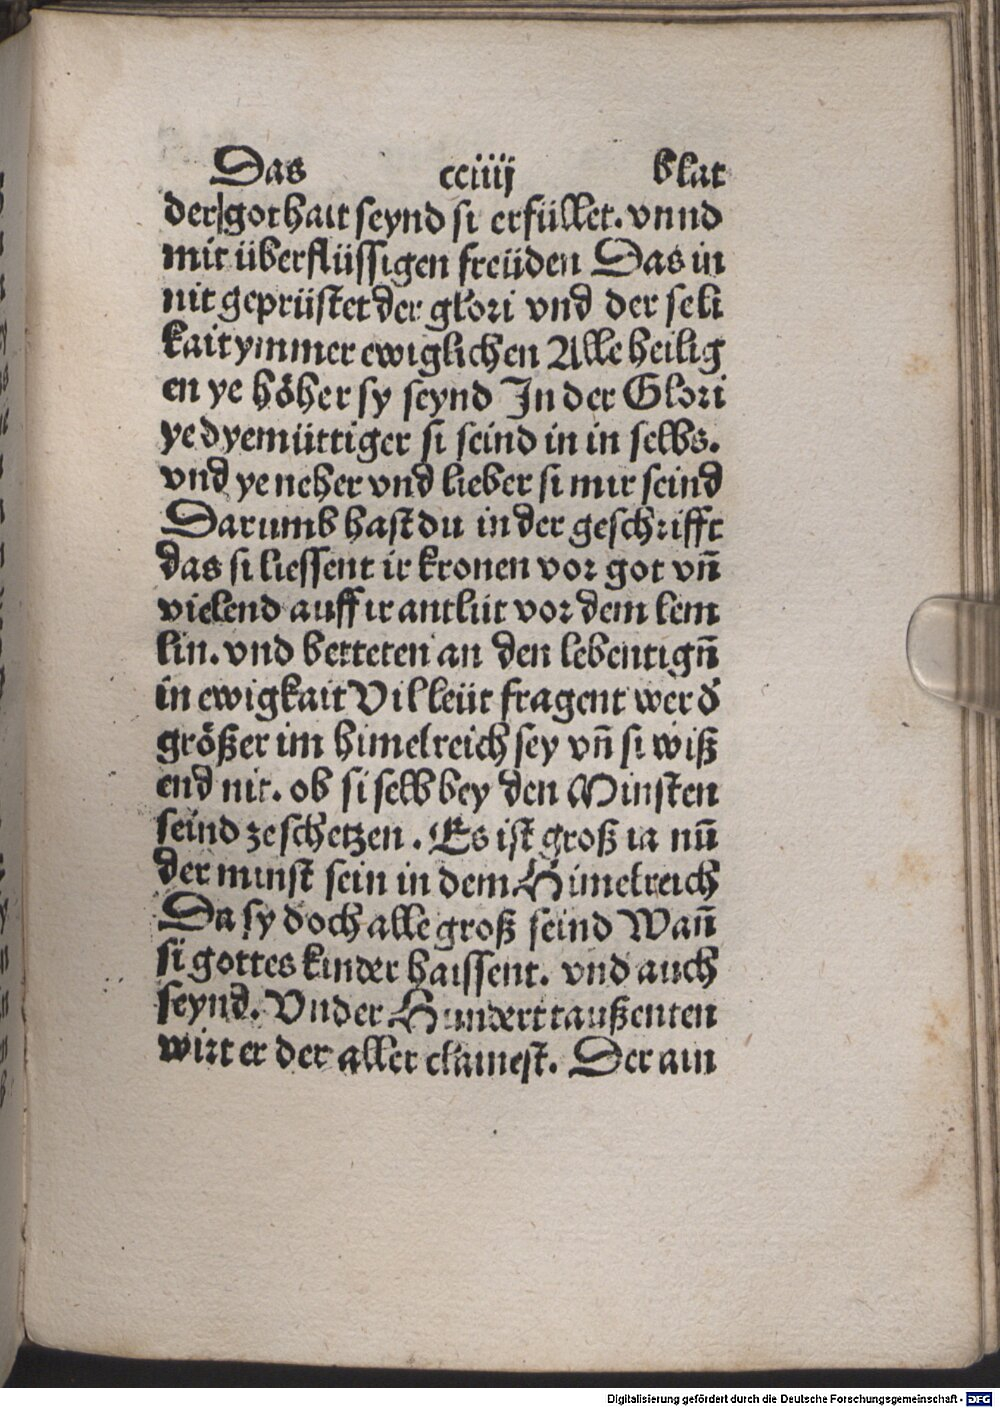 Das cciiij blat
der gothait seynd si erfüllet. vnnd
mit überflüssigen freüden Das in
nit geprüstet der glori vnd der seli
kait ymmer ewiglichen Alle heilig
en ye höher sy seynd In der Glori
ye dyemüttiger si seind in in selbs.
vnd ye neher vnd lieber si mir seind
Darumb hast du in der geschrifft
das si liessent ir kronen vor got vn̄
vielend auff ir antlüt vor dem lem
lin. vnd betteten an den lebentign̄
in ewigkait Vil leüt fragent wer d̕
größer im himelreich sey vn̄ si wiß
end nit. ob si selb bey den Minsten
seind ze schetzen. Es ist groß ia nū
der minst sein in dem Himelreich
Da sy doch alle groß seind Wan̄
si gottes kinder haissent. vnd auch
seynd. Vnder Hundert taußenten
wirt er der aller clainest. Der ain
Digitalisierung gefördert durch die Deutsche Forschungsgemeinschaft - DFG